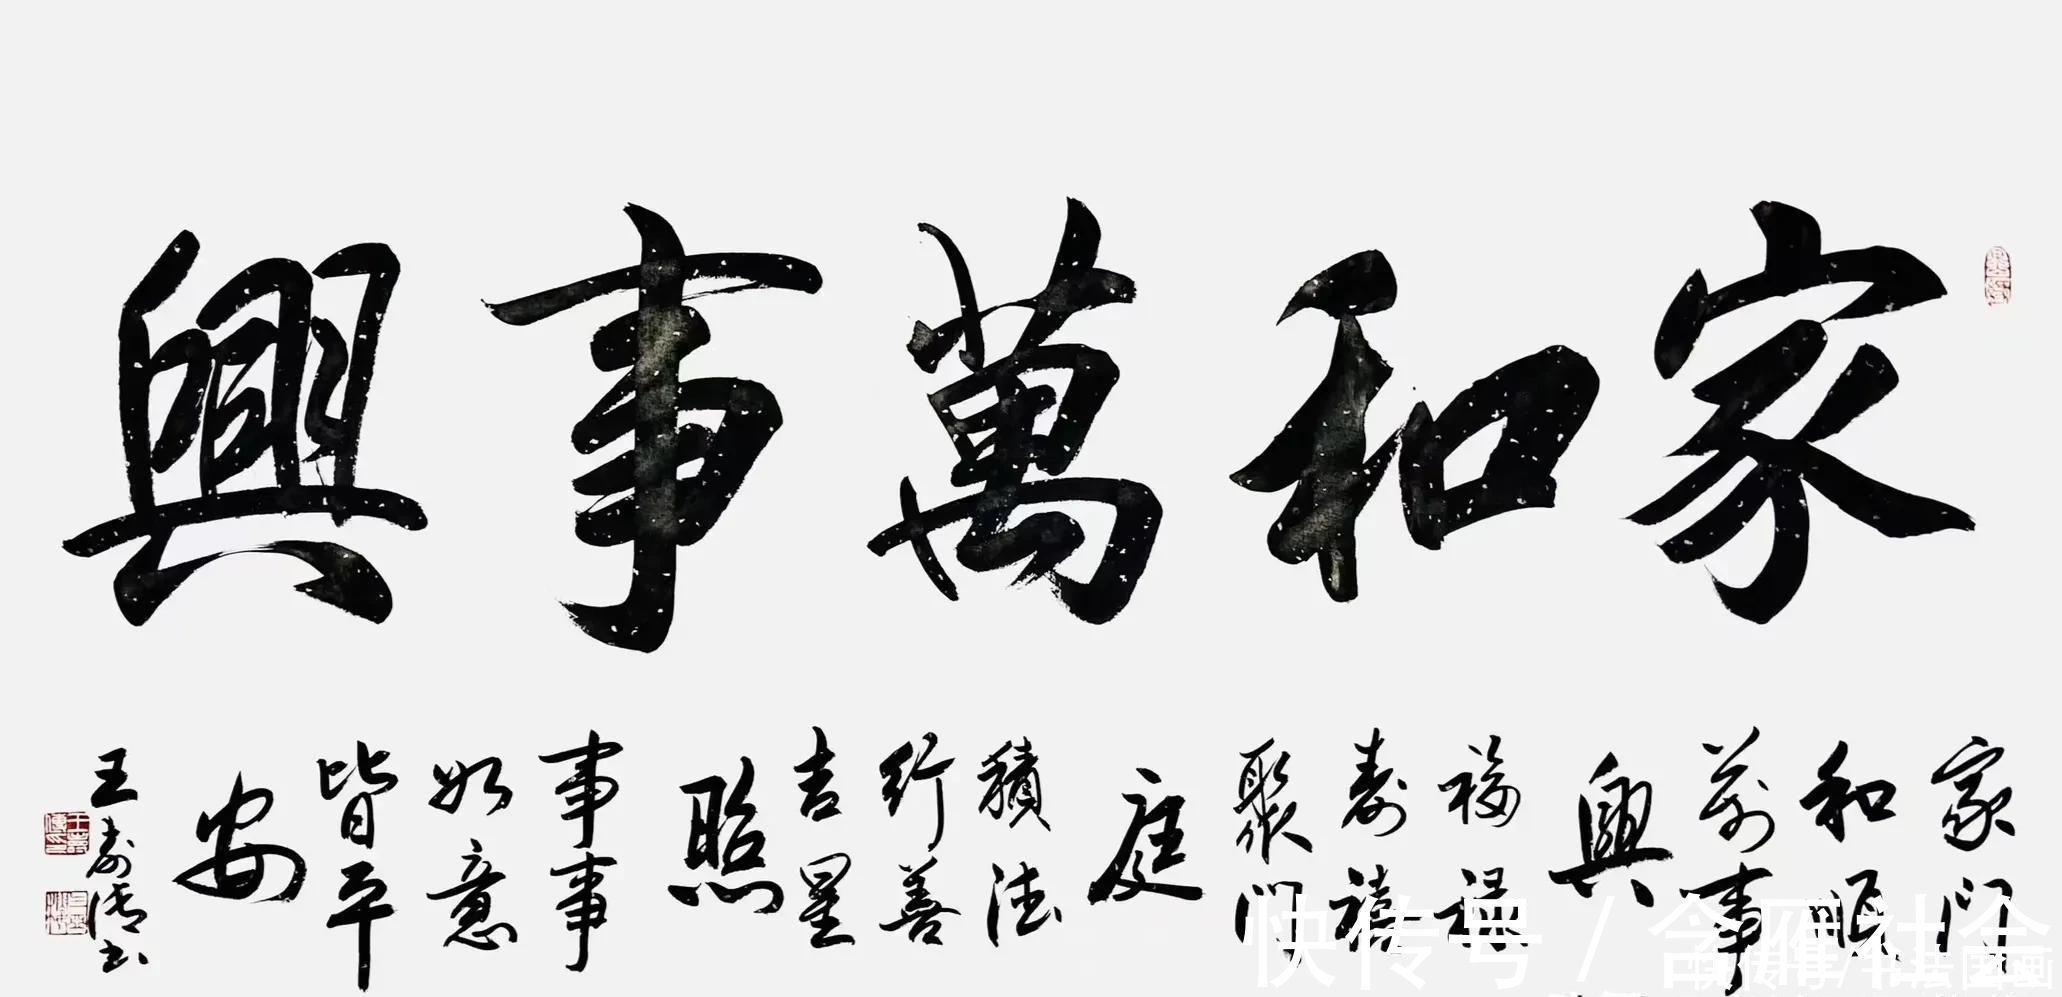 家和萬事興
家门
和顺
萬事
興
福禄
寿禧
聚门
庭
積德
行善
吉星
照
事事
如意
皆平
安
王寿书
快传号 / 含雁社会